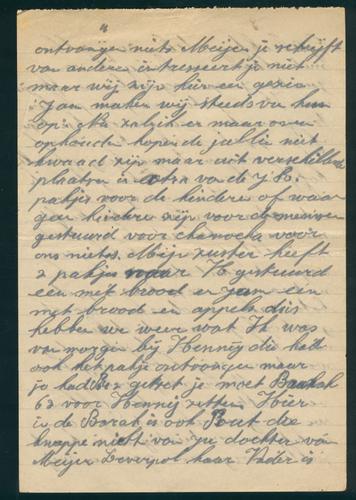 4
ontvangen niets Meijer je schrijft
van andere interesseert je niet
maar wij zijn hier een gezin
Jan maken wij steeds van hem
op. Nu zal ik er maar over
ophouden hopende jullie niet
kwaad zijn maar uit verschillende
plaatsen is extra van de J.
pakjes voor de kinderen of waar
geen kinderen zijn voor de mensen
gestuurd voor chanoeka voor
ons niets. Mijn zuster heeft
2 pakjes naar gestuurd
een met brood en jam een
met brood en appels dus
hebben we weer wat Ik was
van morgen bij Hennij die had
ook het pakje ontvangen maar
jo had gezet je moet Barak
62 voor Hennij zetten Hier
in de Barak is ook Pout die
knappe nicht van je dochter van
Meijer Leverpol haar Vader is